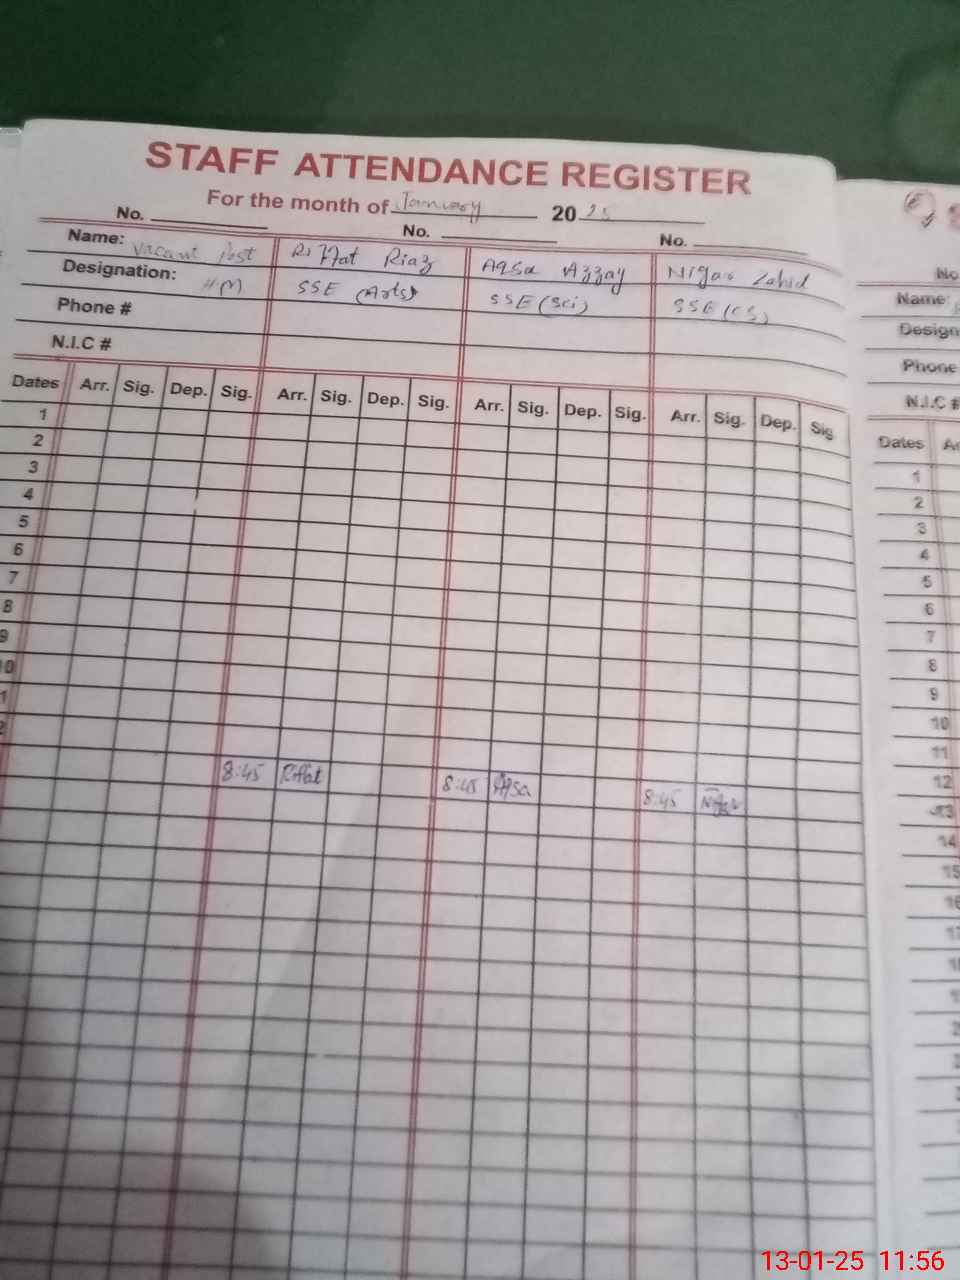 STAFF ATTENDANCE REGISTER
For the month of January 20 25
No. No. No.
Name: Vacant Post Riffat Riaz Aqsa Azzay Nigar Zahid
Designation: HM SSE (Arts) SSE (Sci) SSE (CS)
Phone #
N.I.C #
Dates Arr. Sig. Dep. Sig. Arr. Sig. Dep. Sig. Arr. Sig. Dep. Sig. Arr. Sig. Dep. Sig.
1
2
3
4
5
6
7
8
9
10
1
2
8:45 Riffat 8:45 Aqsa 8:45 Nigar
No
Name:
Design
Phone
N.I.C #
Dates
1
2
3
4
5
6
7
8
9
10
11
12
13
14
15
16
13-01-25 11:56